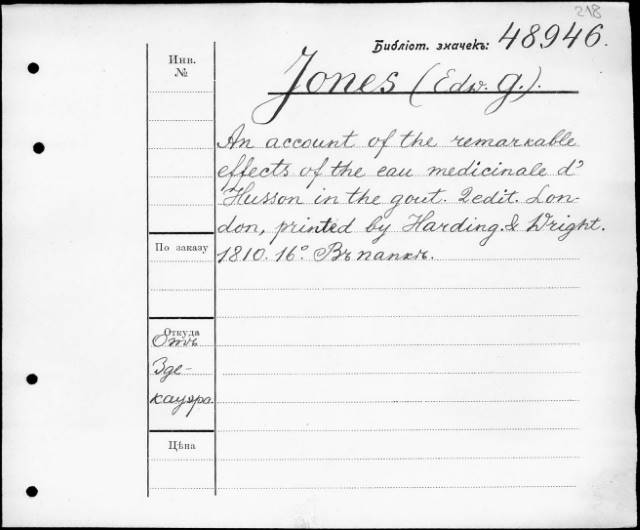 218
Библіот. значекъ: 48946.
Инв.
№
Jones (Edw. G.).
An account of the remarkable
effects of the eau medicinale d'
Husson in the gout. 2 edit. Lon-
don, printed by Harding. & Wright.
1810. 16° Въ папкѣ.
По заказу
Откуда
Отъ
Зде-
кауэра.
Цѣна